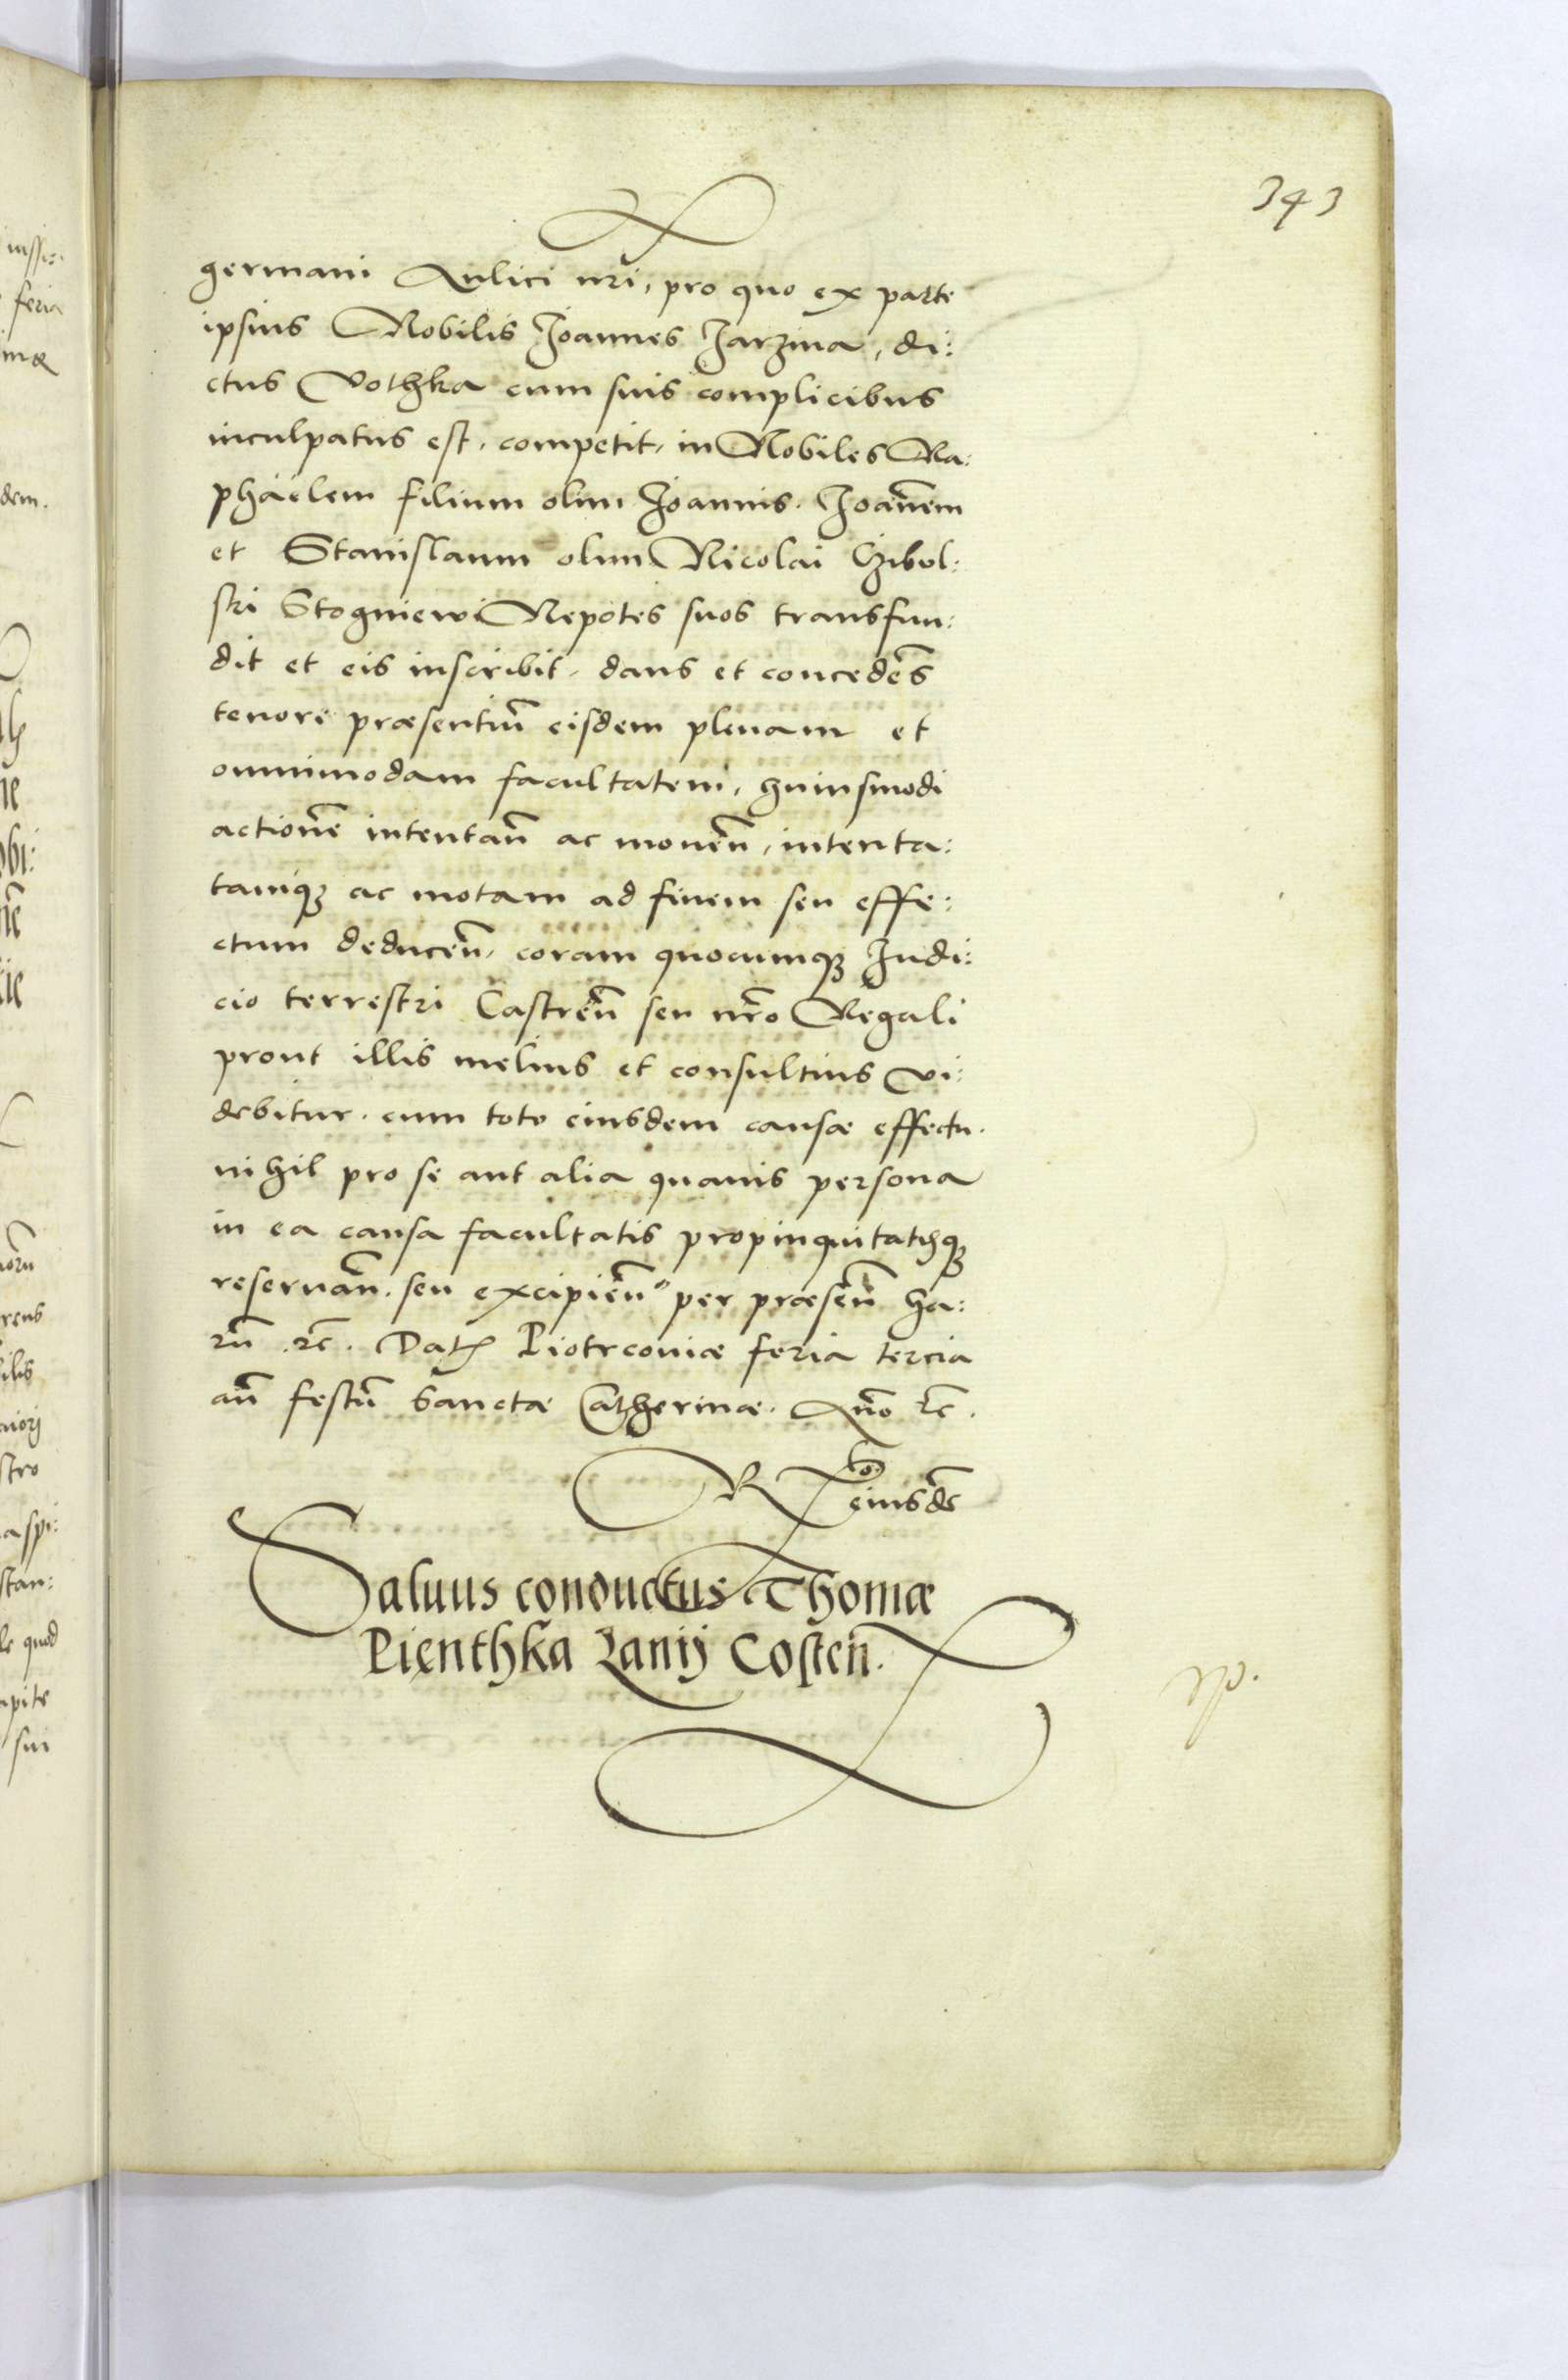 343
germani Aulici nri, pro quo ex parte
ipsius Nobilis Joannes Jarzina, di:
ctus Vothka cum suis complicibus
inculpatus est, competit, in Nobiles Ra:
phaelem filium olim Joannis. Joañem
et Stanislaum olim Nicolai Czibol:
ski Stogniewi Nepotes suos transfun:
dit et eis inscribit, dans et concedẽs
tenore præsentiũ eisdem plenam et
omnimodam facultatem, huiusmodi
actionẽ intentañ ac moueñ, intenta:
tamq3 ac motam ad finem seu effe:
ctum deduceñ, coram quocumq3 Judi:
cio terrestri Castreñ seu nr̃o Regali
prout illis melius et consultius vi:
debitur. cum toto eiusdem causæ effectu.
nihil pro se aut alia quauis persona
in ea causa facultatis propinquitatisq3
reseruañ. seu excipieñ per præseñ ha:
rũ etc̃. Dat Piotrconiæ feria tercia
añ festũ Sanctæ Catherinæ. Año etc̃.
Rto eiusdẽ
Saluus conductus Thomæ
Pienthka Lanij Costeñ.